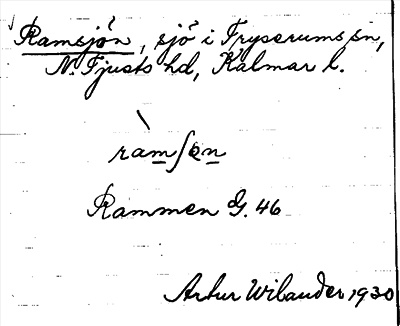 Ramsjön, sjö i Tryserums sn,
N. Tjusts hd, Kalmar l.
ràmʃɵn
Rammen G. 46
Artur Wilander 1930